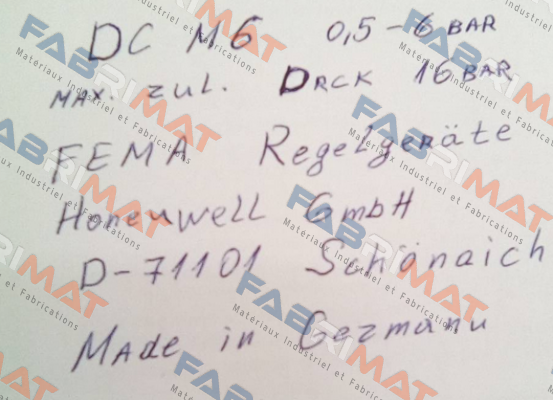 DC M6 0,5-6 BAR
MAX. ZUL. DRCK 16 BAR
FEMA Regelgeräte
Honeuwell GmbH
D-71101 Schönaich
MAde in Gezmanu
FABRIMAT
Matériaux Industriel et Fabrications